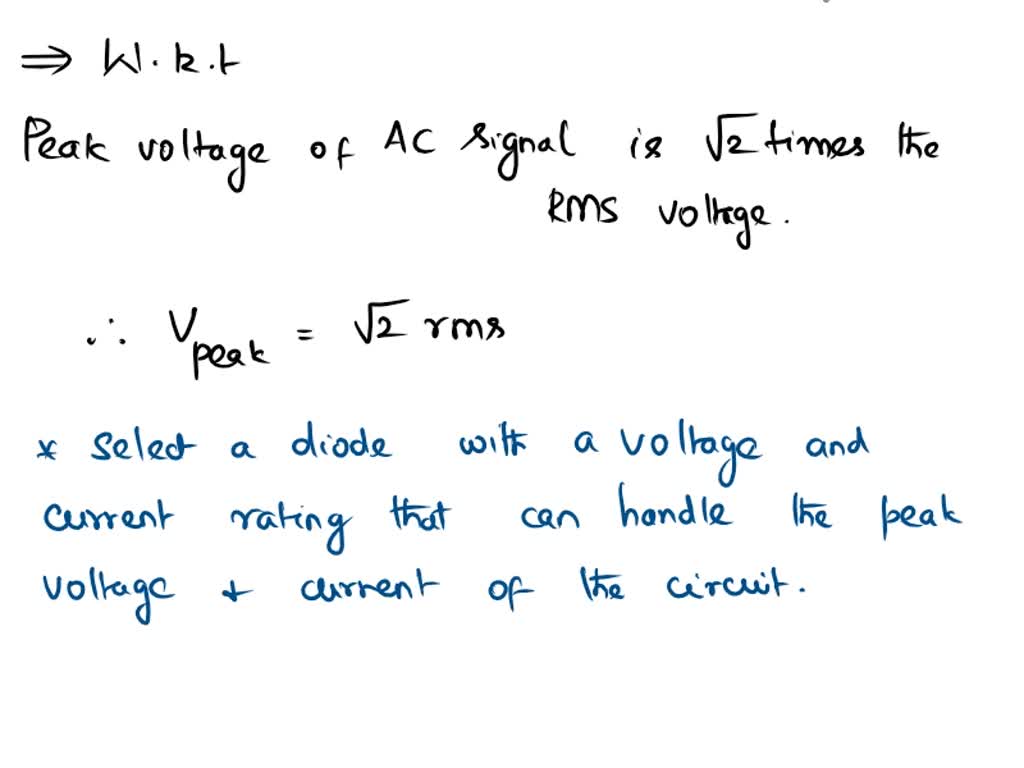 ⇒ W.k.t
Peak voltage of AC signal is √2 times the
RMS voltage.
∴ Vpeak = √2 rms
* select a diode with a voltage and
current rating that can handle the peak
voltage + current of the circuit.